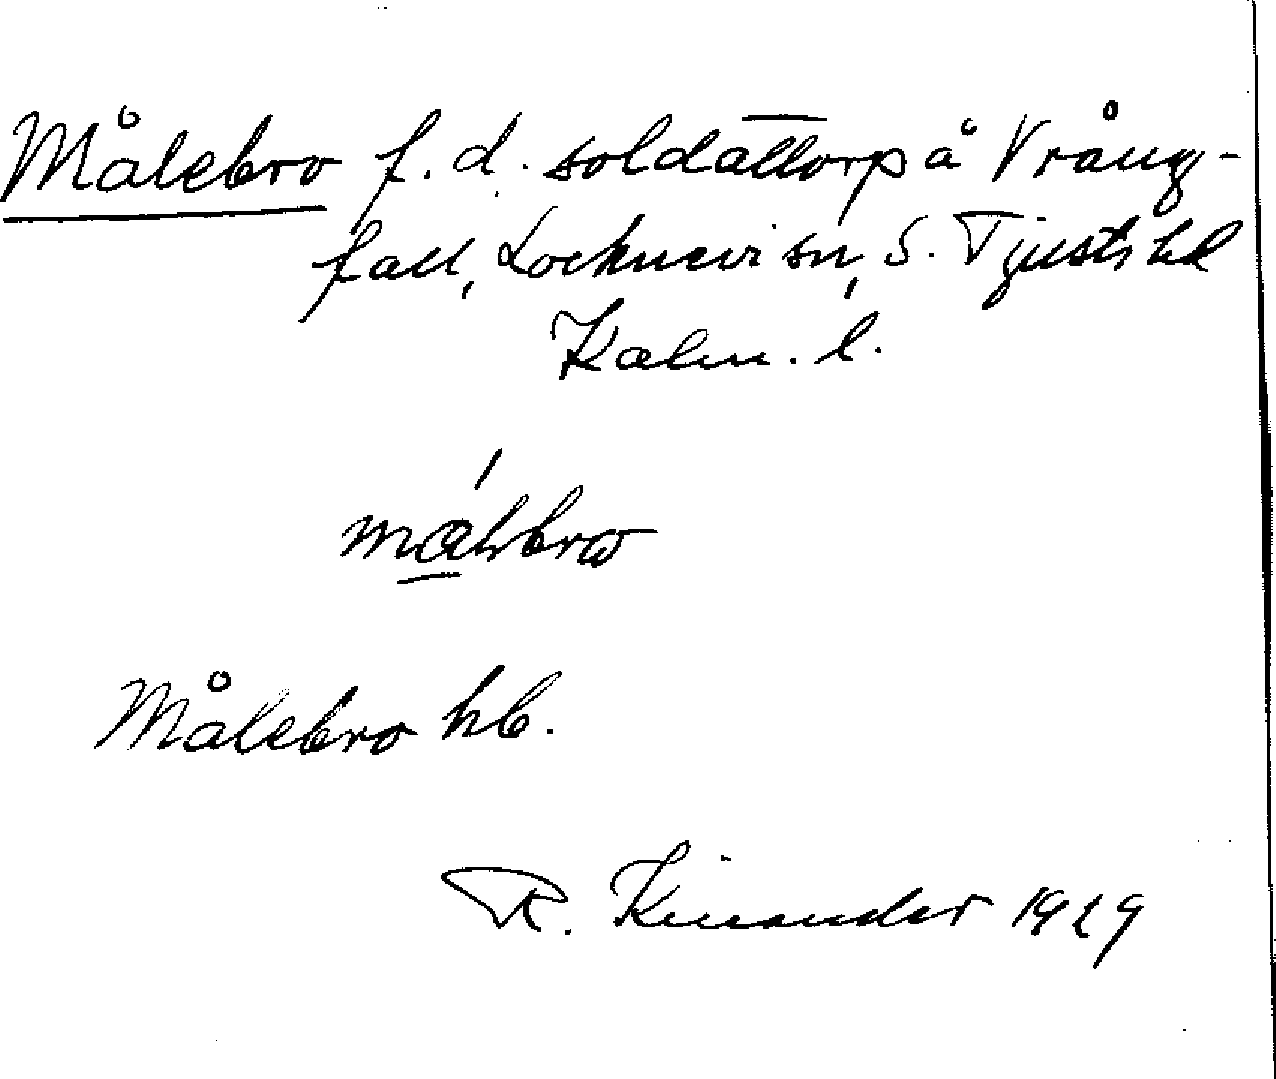 Målebro f. d. soldattorp å Vrång-
fall, Locknevi sn, S. Tjusts hd
Kalm. l.
Målebro hb.
R. Kinander 1929